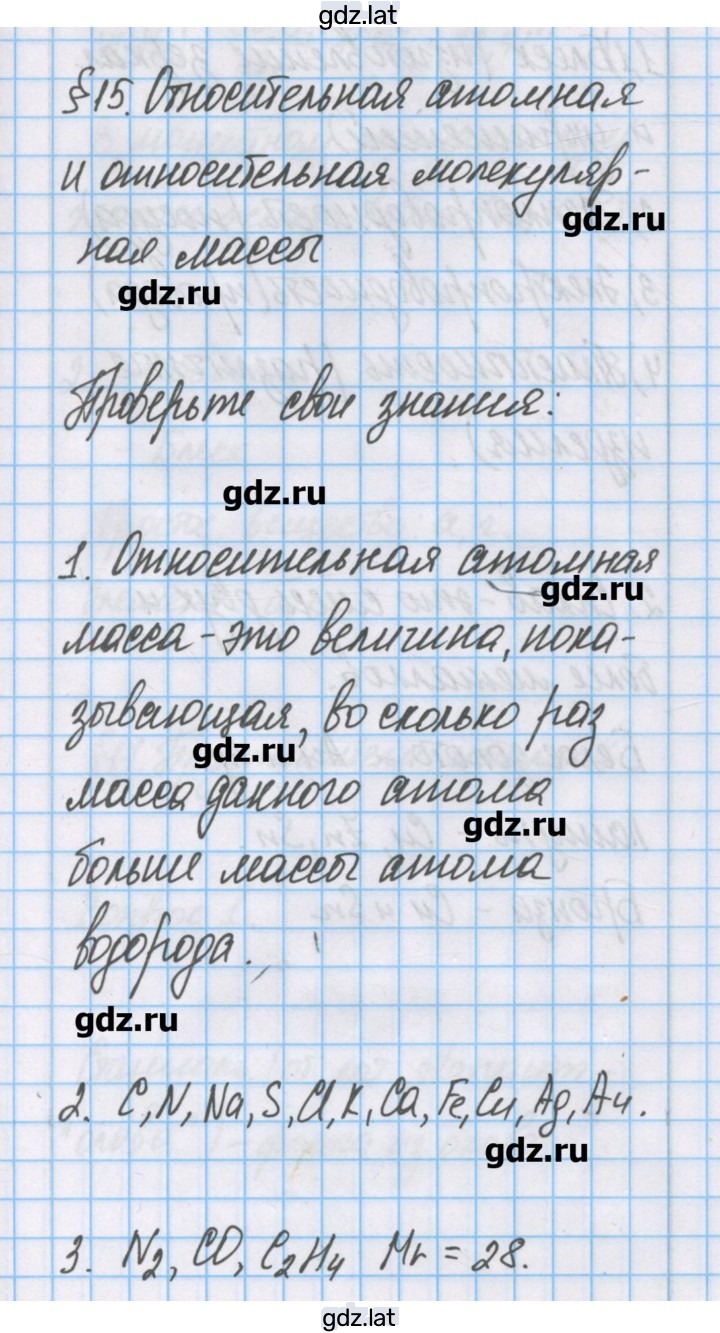 gdz.lat
§15. Относительная атомная
и относительная молекуляр-
gdz.ru
ная массы
gdz.ru
Проверьте свои знания:
gdz.ru
1. Относительная атомная
gdz.ru
масса - это величина, пока-
зывающая, во сколько раз
gdz.ru
масса данного атома
gdz.ru
больше массы атома
водорода.
gdz.ru
2. C, N, Na, S, Cl, K, Ca, Fe, Cu, Ag, Au.
gdz.ru
3. N₂, CO, C₂H₄ Mr = 28.
gdz.lat